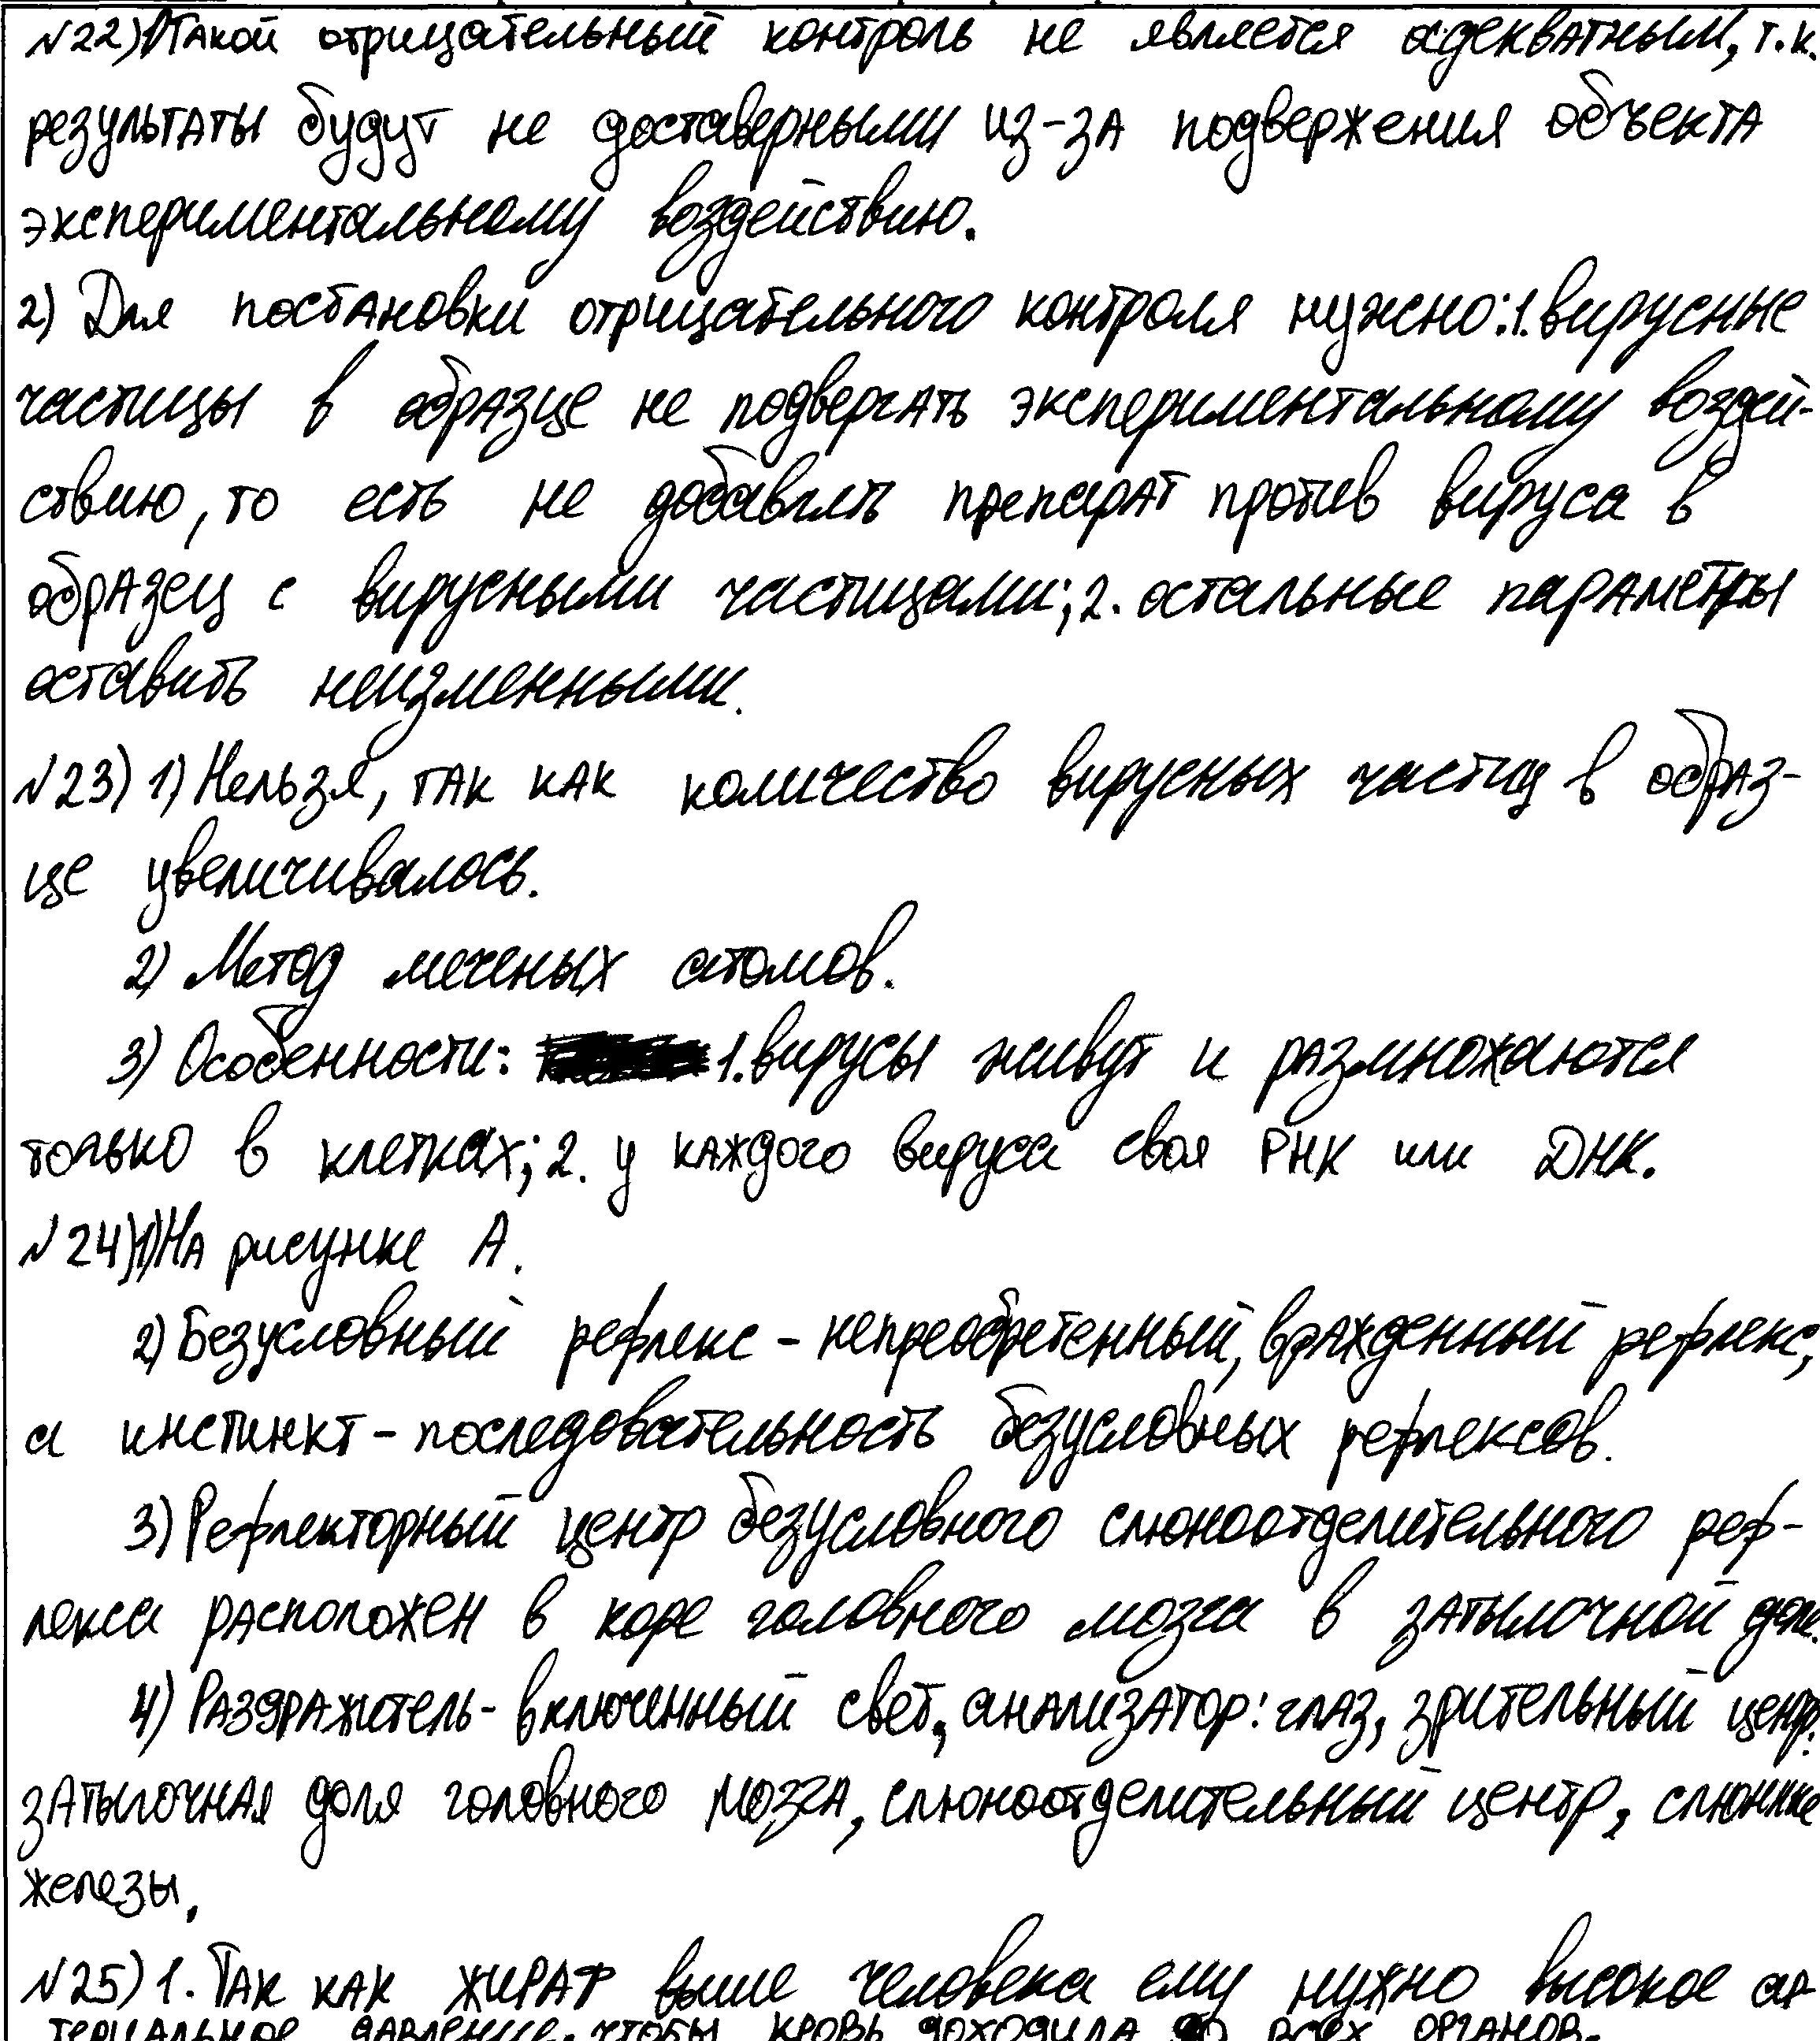 №22) 1) Такой отрицательный контроль не является адекватным, т.к.
результаты будут не доставерными из-за подвержения объекта
экспериментальному воздействию.
2) Для постановки отрицательного контроля нужно: 1. вирусные
частицы в образце не подвергать экспериментальному воздей-
ствию, то есть не добавлять препарат против вируса в
образец с вирусными частицами; 2. остальные параметры
оставить неизменными.
№23) 1) Нельзя, так как количество вирусных частиц в образ-
це увеличивалось.
2) Метод меченых атомов.
3) Особенности: 1. вирусы живут и размножаются
только в клетках; 2. у каждого вируса своя РНК или ДНК.
№24) 1) На рисунке А.
2) Безусловный рефлекс - непреобретенный, врожденный рефлекс,
а инстинкт - последовательность безусловных рефлексов.
3) Рефлекторный центр безусловного слюноотделительного реф-
лекса расположен в коре головного мозга в затылочной доле.
4) Раздражитель - включенный свет, анализатор: глаз, зрительный центр:
затылочная доля головного мозга, слюноотделительный центр, слюнные
железы.
№25) 1. Так как жираф выше человека ему нужно высокое ар-
териальное давление, чтобы кровь доходила до всех органов.